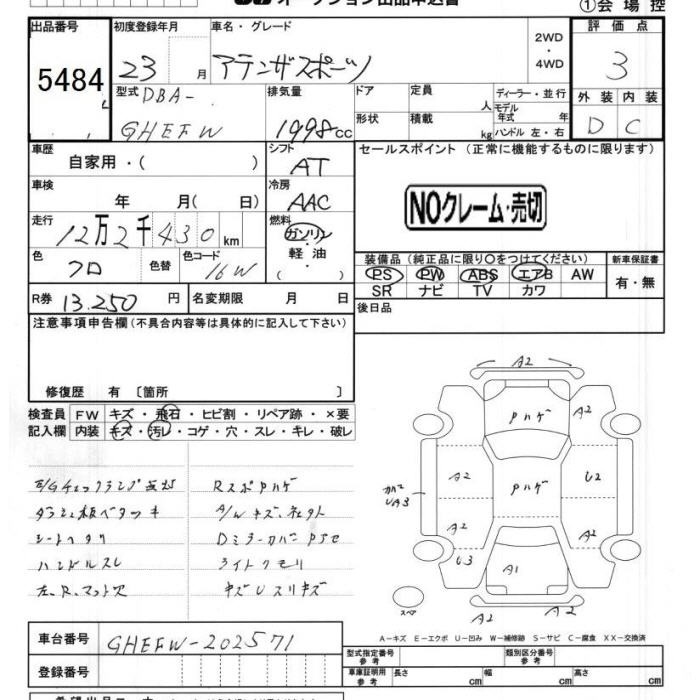 オークション出品申込書
①会場控
出品番号 初度登録年月 車名・グレード 2WD・4WD 評価点
5484 23 月 アテンザスポーツ 3
型式 DBA- GHEFW 排気量 1998cc ドア 定員 人 ディーラー・並行 外装 内装
形状 積載 kg モデル年式 年 ハンドル 左・右 D C
車歴 自家用・( ) シフト AT セールスポイント (正常に機能するものに限ります)
車検 年 月( 日) 冷房 AAC NOクレーム・売切
走行 12万2千430km 燃料 ガソリン・軽油・( )
色 クロ 色替 色コード 16W 装備品 (純正品に限り○をつけてください) 新車保証書
PS PW ABS エアB AW 有・無
SR ナビ TV カワ
R券 13.250 円 名変期限 月 日 後日品
注意事項申告欄 (不具合内容等は具体的に記入して下さい)
修復歴 有 〔箇所 〕
検査員記入欄 FW キズ・飛石・ヒビ割・リペア跡・×要
内装 キズ・汚レ・コゲ・穴・スレ・キレ・破レ
E/Gチェックランプ点灯 RスポPハゲ
ダッシュ板ベタつき A/Wキズ
シートヘタリ DミラーカバーPSセ
ハンドルスレ ライトクモリ
左.R.マット欠 キズUスリキズ
A2
Pハゲ A2
A2 Pハゲ U2
UA3
A2 A2
U3 A1
スペア A2 A2
A-キズ E-エクボ U-凹み W-補修跡 S-サビ C-腐食 XX-交換済
車台番号 GHEFW-202571
型式指定番号 参考 類別区分番号 参考
登録番号 車庫証明用 参考 長さ 幅 高さ